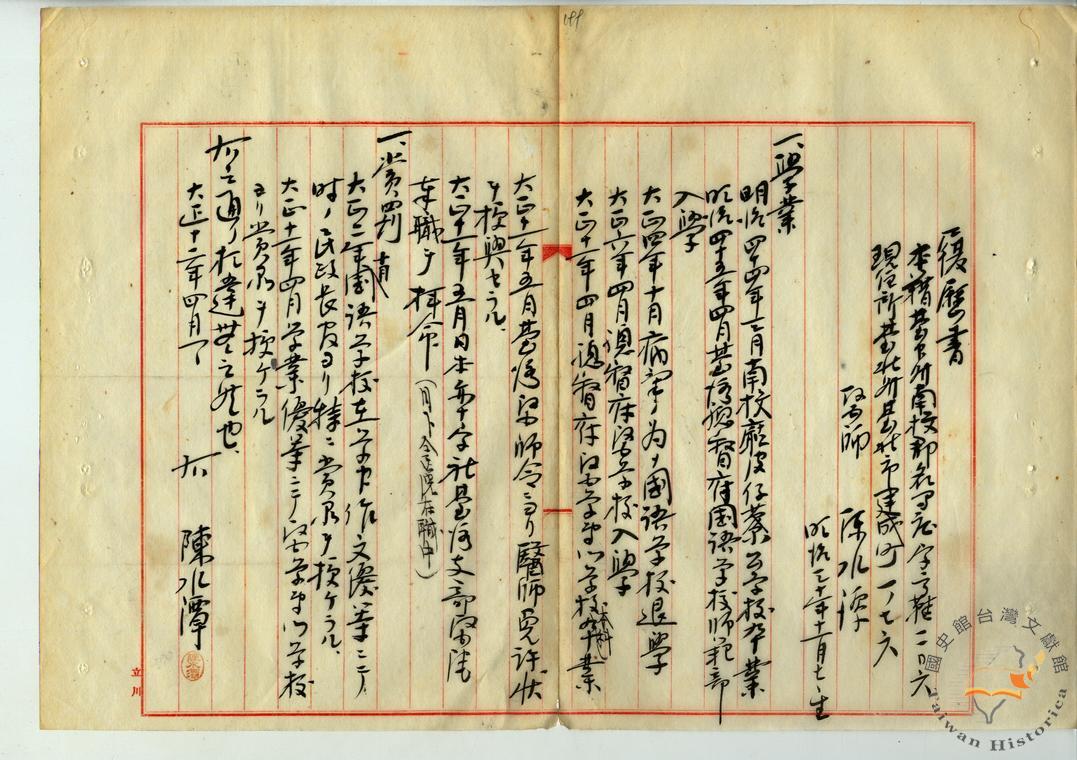 履歷書
本籍臺中州南投郡名间庄字二〇六
現住所臺北州臺北市建成町一ノ七六
医師 陳水潭
明治三十年十一月七日生
一、學業
明治四十四年三月南投廳皮仔藔公学校卒業
明治四十五年四月臺湾総督府国語学校師範部
入學
大正四年十月病氣ノ為メ國語学校退學
大正六年四月総督府医学校入學
大正十一年四月総督府医学専門学校本科卒業
大正十一年五月臺湾医師令ニヨリ醫師免許状
ヲ授與セラル、
大正十一年五月日本赤十字社臺湾支部医院
奉職ヲ拝命(目下仝医院在職中)
一、賞罰
大正二年十月國語学校在学中作文優等ニテ
時ノ民政長官ヨリ特ニ賞品ヲ授ケラル、
大正十一年四月学業優等ニテ医学専門学校
ヨリ賞品ヲ授ケラル
右之通リ相違無之候也、
大正十二年四月
右 陳水潭
立川
國史館台灣文獻館
Taiwan Historica